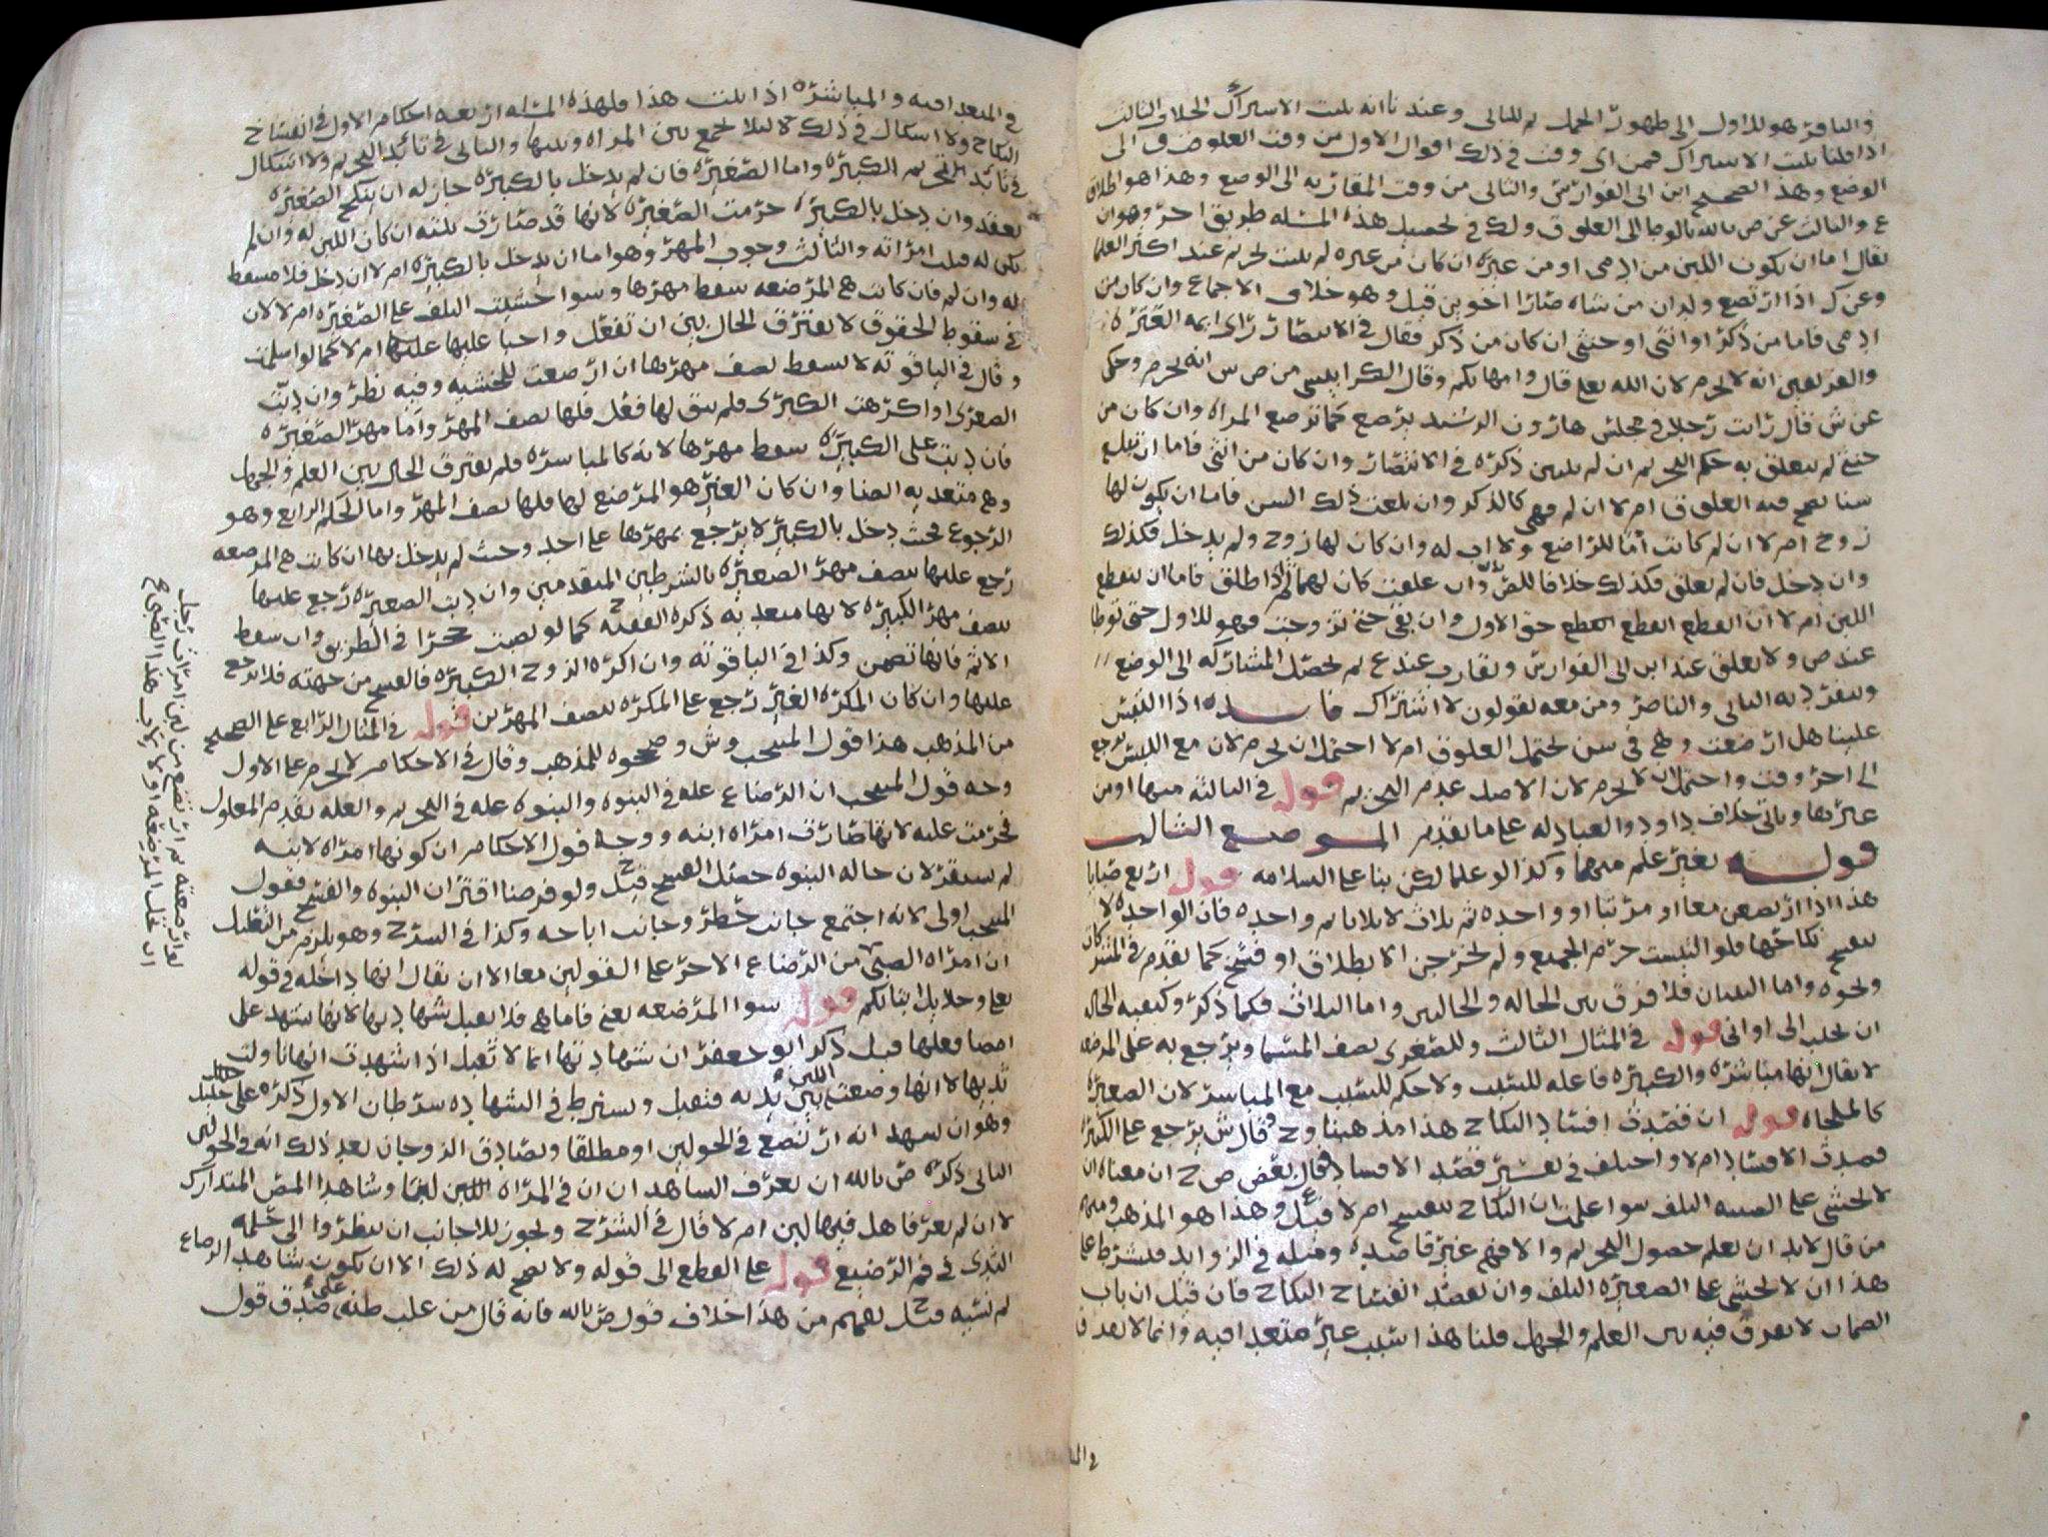 والباقر هو للاول الى ظهور الحمل ثم للثاني وعندنا انه يثبت الاشتراك الخلاف الثالث
اذا قلنا يثبت الاشتراك فمن اي وقت في ذلك اقوال الاول من وقت العلوق الى
الوضع وهذا الصحيح ابن ابي الفوارس والثاني من وقت المقاربه الى الوضع وهذا هو اطلاق
ع والثالث عن ص بالله بالوطا الى العلوق ولك في تحصيل هذه المسله طريق اخر وهو ان
يقال اما ان يكون اللبن من ادمي او من غيره ان كان من غيره لم يثبت تحريم عند اكثر العلما
وعن ك اذا ارتضع ولدان من شاه صارا اخوين قيل وهو خلاف الاجماع وان كان من
ادمي فاما من ذكر او انثى او خنثى ان كان من ذكر فقال في الانتصار راى ايمه العتره
والفريقين انه لا يحرم لان الله تعلى قال وامهاتكم وقال الكرابيسي من ص ش انه يحرم وحكى
عن ش قال رايت رجلا في مجلس هارون الرشيد يرضع كما ترضع المراه وان كان من
خنثى لم يتعلق به حكم التحريم ان لم يتبين ذكره في الانتصار وان كان من انثى فاما ان تبلغ
سنا يصح فيه العلوق ام لا ان لم فهي كالذكر وان بلغت ذلك السن فاما ان يكون لها
زوج ام لا ان لم كانت اما للرضيع ولا اب له وان كان لها زوج ولم يدخل فكذلك
وان دخل فان لم تعلق فكذلك خلافا للص وان علقت كان لهما ثم اذا طلق فاما ان ينقطع
اللبن ام لا ان انقطع انقطع حق الاول وان بقي حتى تزوجت فهو للاول حتى توطا
عند ص ولا تعلق عند ابن ابي الفوارس وتقارب عند ع ثم تحصل المشاركه الى الوضع
وينفرد به الثاني والناصر ومن معه يقولون لا اشتراك فايـــده اذا التبس
علينا هل ارضعت وهي في سن تحتمل العلوق ام لا احتمل ان يحرم لان مع اللبس يرجع
الى اخر وقت واحتمل ان لا يحرم لان الاصل عدم التحريم قوله في الثالثه منها او من
غيرها وياتي خلاف داود والعبادله على ما تقدم الموضع الثالث
قوله بغير علم منهما وكذا لو علما لكن بنا على السلامه قوله اربع صبايا
هذا اذا ارتضعن معا او مرتبا او واحده ثم ثلاث لا ثلاثا ثم واحده فان الواحده لا
ينفسخ نكاحها فلو التبست حرم الجميع ولم تخرجن الا بطلاق او فسخ كما تقدم في المشركات
ونحوه واما الثنتان فلا فرق بين الخاله والخالتين واما الثلاث فكما ذكر وكيفيه الحاله
ان تحلب الى اواني قوله في المثال الثالث وللصغرى نصف المسما ويرجع به على المرضعه
لا يقال انها مباشره والكبيره فاعله للسبب ولا حكم للسبب مع المباشر لان الصغيره
كالملجاه قوله ان قصدت افساد النكاح هذا مذهبنا وح وقال ش يرجع على الكبيره
قصدت الافساد ام لا واختلف في تفسير قصد الافساد فقال بعض ص ح ان معناه ان
لا تخشى على الصبيه التلف سوا علمت ان النكاح ينفسخ ام لا قيل ع وهذا هو المذهب ومنهم
من قال لا بد ان تعلم حصول التحريم والا فهم غير قاصده ومثله في الزوايد فيشترط على
هذا ان لا تخشى على الصغيره التلف وان تقصد انفساخ النكاح فان قيل ان باب
الضمان لا يفرق فيه بين العلم والجهل قلنا هذا سبب غير متعد فيه وانما لا يعد فا
في المتعدا فيه والمباشره اذا ثبت هذا فلهذه المسله اربعه احكام الاول في انفساخ
النكاح ولا اشكال في ذلك لئلا يجمع بين المراه وبنتها والثاني في تابيد التحريم ولا اشكال
في تابيد تحريم الكبيره واما الصغيره فان لم يدخل بالكبيره جاز له ان ينكح الصغيره
بعقد وان دخل بالكبيره حرمت الصغيره لانها قد صارت بنته ان كان اللبن له وان لم
يكن له فبنت امراته والثالث وجوب المهر وهو اما ان يدخل بالكبيره ام لا ان دخل فلا مسقط
له وان لم فان كانت هي المرضعه سقط مهرها وسوا خشيت التلف على الصغيره ام لا لان
في سقوط الحقوق لا يفترق الحال بين ان تفعل واجبا عليها ام لا كما لو اسلمت
وقال في الياقوته لا يسقط نصف مهرها ان ارضعت للخشيه وفيه نظر وان دبت
الصغرى او اكرهت الكبرى فلم يبق لها فعل فلها نصف المهر واما مهر الصغيره
فان دبت على الكبيره سقط مهرها لانه كالمباشره فلم يفترق الحال بين العلم والجهل
وهي متعديه ايضا وان كان الغير هو المرضع لها فلها نصف المهر واما الحكم الرابع وهو
الرجوع فحيث دخل بالكبيره لا يرجع بمهرها على احد وحيث لم يدخل بها ان كانت هي المرضعه
رجع عليها بنصف مهر الصغيره بالشرطين المتقدمين وان دبت الصغيره رجع عليها
بنصف مهر الكبيره لانها متعديه ذكره الفقيه ح كما لو نصبت حجرا في الطريق وان سقط
الاثم فانها تضمن وكذا في الياقوته وان اكره الزوج الكبيره فالفسخ من جهته فلا يرجع
عليها وان كان المكره الغير رجع على المكره بنصف المهرين قوله في المثال الرابع على الصحيح
من المذهب هذا قول المنتخب وش وصححوه للمذهب وقال في الاحكام لا تحرم على الاول
وجه قول المنتخب ان الرضاع عله في البنوه والبنوه عله في التحريم والعله تقدم المعلول
فحرمت عليه لانها صارت امراه ابنه ووجه قول الاحكام ان كونها امراه لابنه
لم يستقر لان حاله البنوه حصل الفسخ قيل ح ولو فرضنا اقتران البنوه والفسخ فقول
المنتخب اولى لانه اجتمع جانب حظر وجانب اباحه وكذا في الشرح وهو يلزم من التعليل
ان امراه الصبي من الرضاع الاخر على القولين معا الا ان يقال انها داخله في قوله
تعلى وحلايل ابنايكم قوله سوا المرضعه يعني فاما هي فلا تقبل شهادتها لانها تشهد على
امضا فعلها قيل ذكر ابو جعفر ان شهادتها انما لا تقبل اذا شهدت انها ناولت
ثديها لا انها وضعت اللبن بين يديه فتقبل ويشترط في الشهاده شرطان الاول ذكره على خليل
وهو ان يشهد انه ارتضع في الحولين او مطلقا وتصادق الزوجان بعد ذلك انه في الحولين
الثاني ذكره ص بالله ان يعرف الشاهدان ان في المراه لبنا وشاهدا المص المتدارك
لا ان لم يعرفا هل فيها لبن ام لا قال في الشرح ويجوز للاجانب ان ينظروا الى حلمه
الثدي في فم الرضيع قوله على القطع الى قوله ولا يصح له ذلك الا ان يكون شاهد الرضاع
لم نسيه قيل يفهم من هذا خلاف قول ص بالله فانه قال من غلب على ظنه صدق قول
لو ارضعته ثم ارتضع من لبن امرات رجل